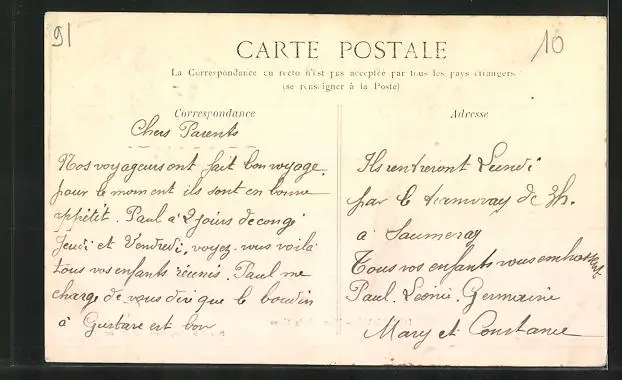 91
10
CARTE POSTALE
La Correspondance au recto n'est pas acceptée par tous les pays étrangers
(se renseigner à la Poste)
Correspondance
Chers Parents
Nos voyageurs ont fait bon voyage,
pour le moment ils sont en bonne
appétit. Paul a 2 jours de congi
Jeudi et Vendredi, voyez-vous voila
tous vos enfants réunis. Paul me
charge de vous dire que le boudin
à Gustave est bon
Adresse
Ils rentreront Lundi
par le de 3h.
a Saumeray
Tous vos enfants vous embrassent
Paul. Léonie. Germaine
Mary et Constance